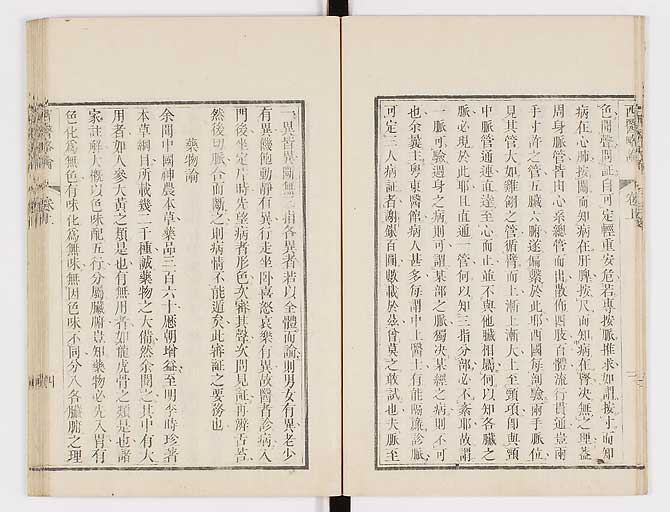 西醫略論
卷上
色聞聲問証自可定輕重安危若專按脈推求如謂按寸而知
病在心肺按關而知病在肝脾按尺而知病在腎決無之理蓋
周身脈管皆由心系總管而出散佈四肢百體流行貫通豈兩
手寸許之管五臟六腑遂偏繫於此耶西國每剖驗兩手脈位
見其管大如雞翎之管循臂而上漸上漸大上至頸項即與頸
中脈管通連直達至心而止並不與他臟相屬何以知各臟之
脈必現於此耶且直通一管何以知三指分部必不紊耶故謂
一脈可驗週身之脈則可謂某部之脈獨決某經之病則不可
也余曩在粵東醫館病人甚多每謂中土醫士有能隔簾診脈
可定三人病証者謝銀百圓數載於茲曾莫之敢試也夫脈至
一異皆異斷無三指各異者若以全體而論則男女有異老少
有異饑飽動靜有異行走坐臥喜怒哀樂有異故醫者診病入
門後坐定片時先望病者形色次審其聲次問見証再辨舌苔
然後切脈合而斷之則病情不能遁矣此審証之要務也
藥物論
余閱中國神農本草藥品三百六十歷朝增益至明李時珍著
本草綱目所載幾二千種誠藥物之大備然余閱之其中有大
用者如人參大黃之類是也有無用者如龍虎骨之類是也諸
家註解大概以色味配五行分屬臟腑豈知藥物必先入胃有
色化為無色有味化為無味無因色味不同分入各臟腑之理
西醫略論
卷上
四